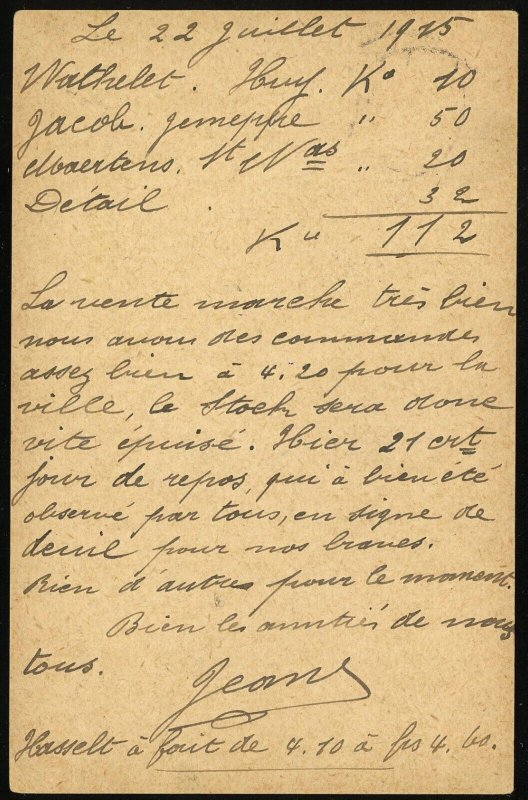 Le 22 Juillet 1915
Wathelet. Huy. Ko 10
Jacob. Jemeppe " 50
Maertens. St Nas " 20
Détail . 32
Ko 112
La vente marche très bien
nous avons des commandes
assez bien à 4.20 pour la
ville, le Stock sera donc
vite épuisé. Hier 21 crt
jour de repos, qui à bien été
observé par tous, en signe de
deuil pour nos braves.
Rien d'autres pour le moment.
Bien les amitiés de nous
tous.
Jean
Hasselt à fait de 4.10 à frs 4.60.